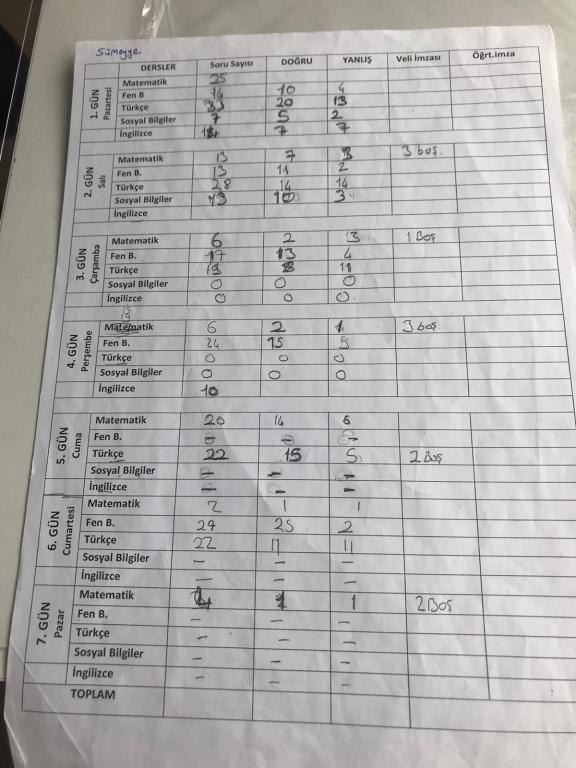 Sümeyye
DERSLER Soru Sayısı DOĞRU YANLIŞ Veli İmzası Öğrt.imza
1. GÜN Pazartesi
Matematik 25
Fen B 14 10 4
Türkçe 33 20 13
Sosyal Bilgiler 7 5 2
İngilizce 14 7 7
2. GÜN Salı
Matematik 13 7 3 3 boş.
Fen B. 13 11 2
Türkçe 28 14 14
Sosyal Bilgiler 13 10 3
İngilizce
3. GÜN Çarşamba
Matematik 6 2 3 1 Boş
Fen B. 17 13 4
Türkçe 19 8 11
Sosyal Bilgiler 0 0 0
İngilizce 0 0 0
4. GÜN Perşembe
Matematik 6 2 1 3 boş
Fen B. 24 15 9
Türkçe 0 0 0
Sosyal Bilgiler 0 0 0
İngilizce 10
5. GÜN Cuma
Matematik 20 14 6
Fen B. - - -
Türkçe 22 15 5 2 Boş
Sosyal Bilgiler - - -
İngilizce - - -
6. GÜN Cumartesi
Matematik 2 1 1
Fen B. 27 25 2
Türkçe 22 11 11
Sosyal Bilgiler - - -
İngilizce - - -
7. GÜN Pazar
Matematik 4 1 1 2 Boş
Fen B. - - -
Türkçe - - -
Sosyal Bilgiler - - -
İngilizce - - -
TOPLAM